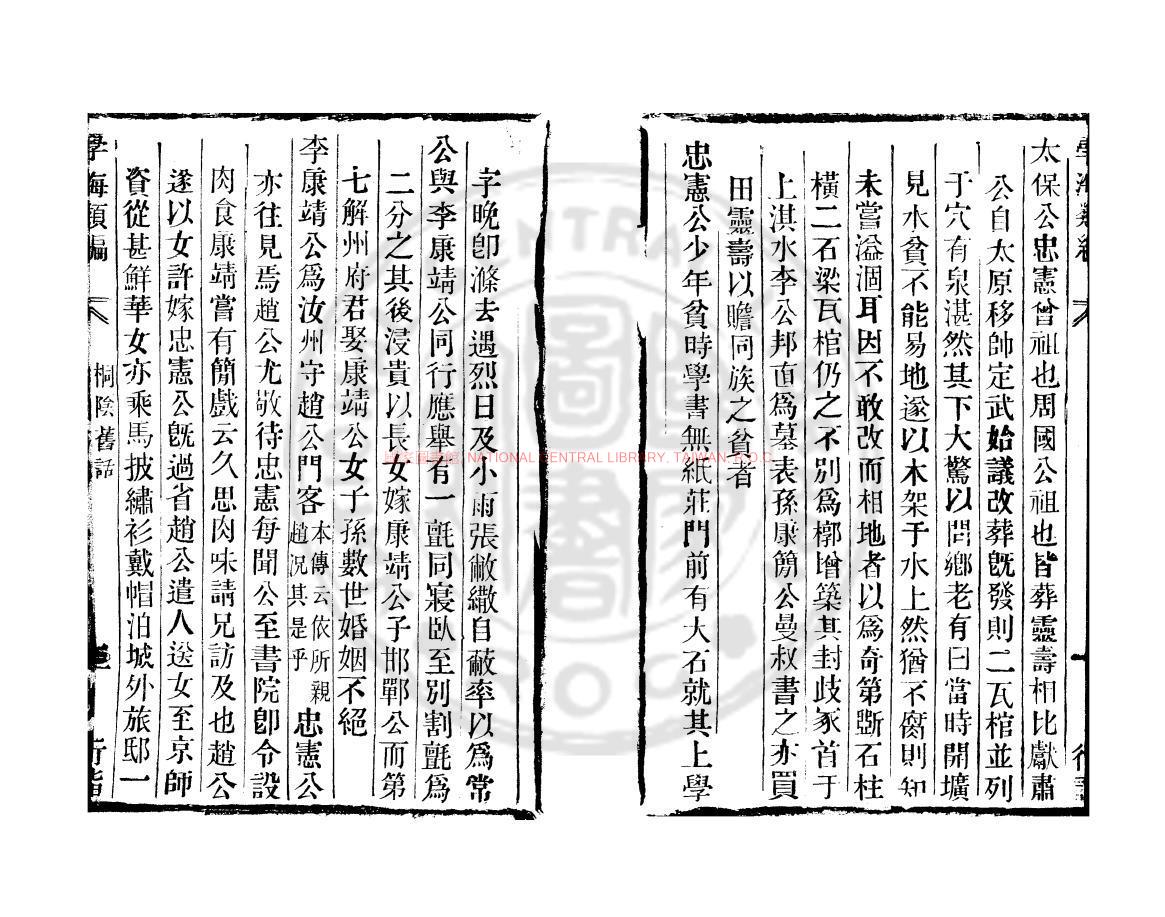 太保公忠憲曾祖也周國公祖也皆葬靈壽相比獻肅
公自太原移師定武始議改葬旣發則二瓦棺並列
于穴有泉湛然其下大驚以問鄕老有曰當時開壙
見水貧不能易地遂以木架于水上然猶不腐則知
未嘗溢涸耳因不敢改而相地者以爲奇第斲石柱
橫二石梁瓦棺仍之不別爲槨增築其封歧冢首于
上淇水李公邦直爲墓表孫康簡公曼叔書之亦買
田靈壽以贍同族之貧者
忠憲公少年貧時學書無紙莊門前有大石就其上學
字晚卽滌去遇烈日及小雨張敝繖自蔽率以爲常
公與李康靖公同行應舉有一氈同寢臥至別割氈爲
二分之其後浸貴以長女嫁康靖公子邯鄲公而第
七解州府君娶康靖公女子孫數世婚姻不絕
李康靖公爲汝州守趙公門客本傳云依所親趙況其是乎忠憲公
亦往見焉趙公尤敬待忠憲每聞公至書院卽令設
肉食康靖嘗有簡戲云久思肉味請兄訪及也趙公
遂以女許嫁忠憲公旣過省趙公遣人送女至京師
資從甚鮮華女亦乘馬披繡衫戴帽泊城外旅邸一
學海類編 桐陰舊話
國家圖書館, NATIONAL CENTRAL LIBRARY, TAIWAN, R.O.C.